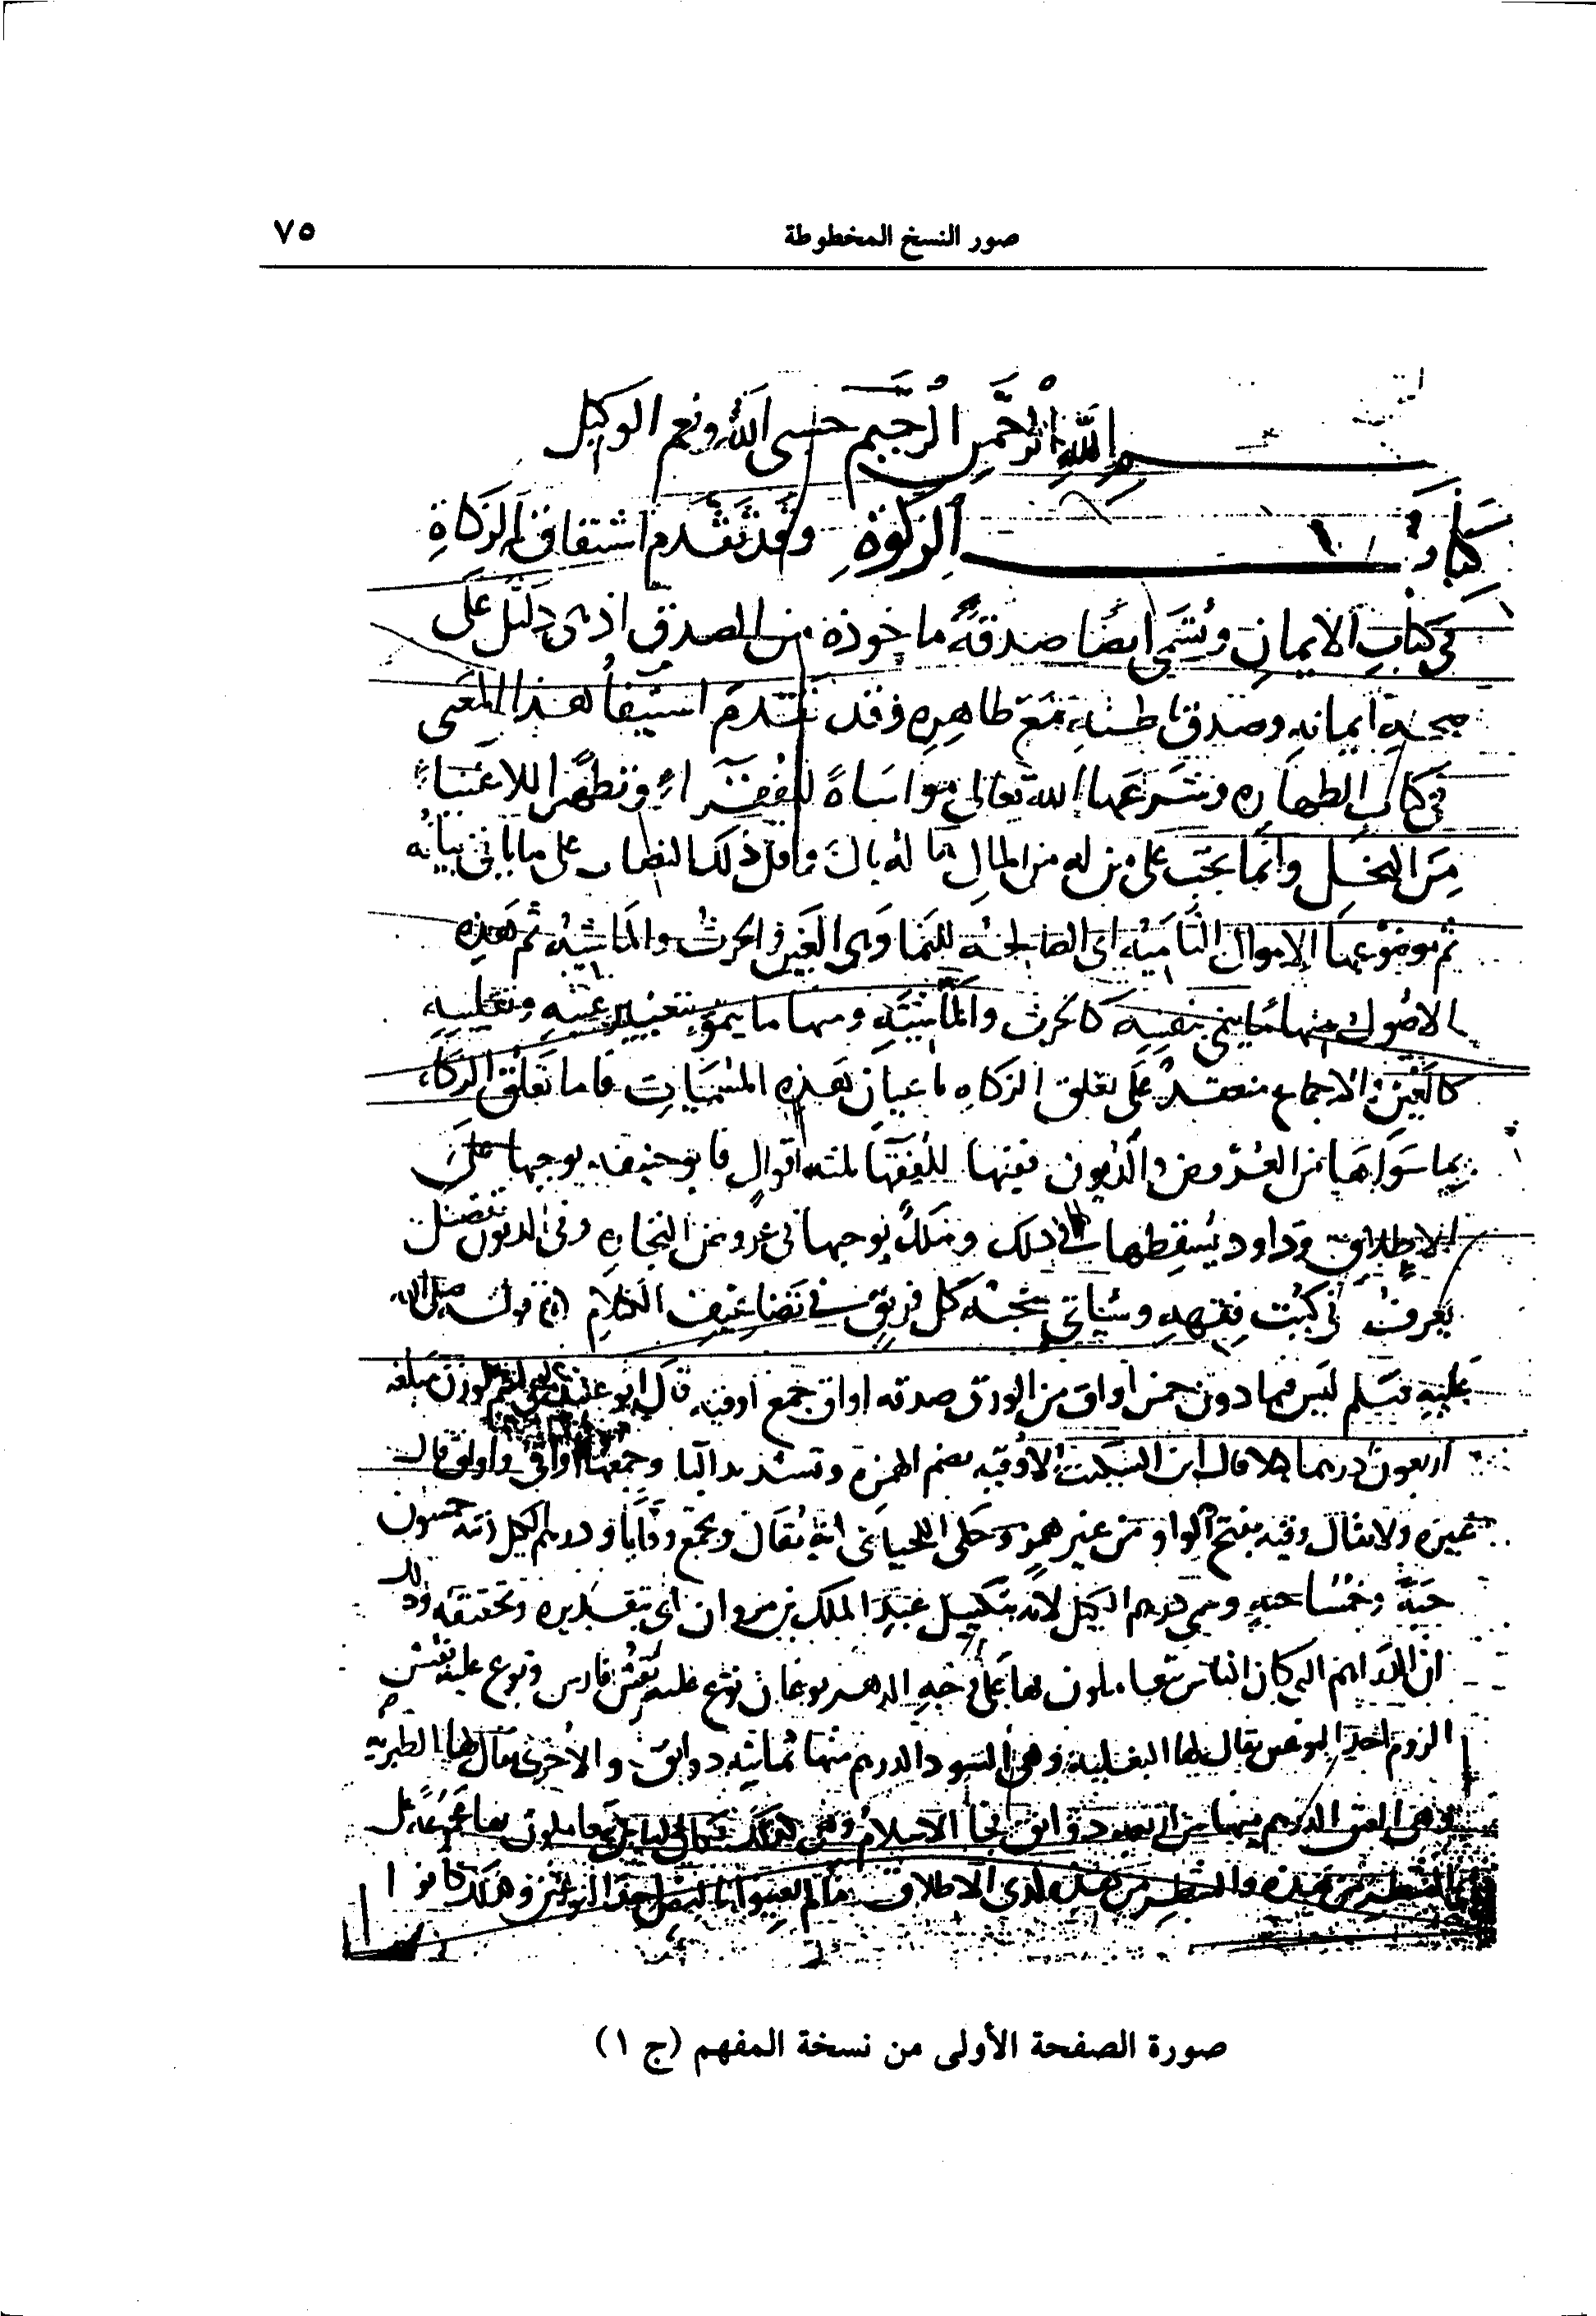 صور النسخ المخطوطة
٧٥
بسم الله الرحمن الرحيم حسبي الله ونعم الوكيل
كتاب الزكوة وقد تقدم اشتقاق الزكاة
في كتاب الايمان وتسمى ايضا صدقة ماخوذة من الصدق اذ هي دليل على
صحة ايمانه وصدق باطنه مع ظاهره وقد تقدم استيفا هذا المعنى
في كتاب الطهاره وشرعها الله تعالى مواساة للفقراء وتطهيرا للاغنياء
من البخل وانما تجب على من له من المال ما له بال واقل ذلك النصاب على ما ياتي بيانه
ثم موضوعها الاموال النامية اي الصالحة للنما وهي العين والحرث والماشية ثم هذه
الاصول منها ما ينمي بنفسه كالحرث والماشية ومنها ما ينمو بتغيير عينه وتقليبه
كالعين والاجماع منعقد على تعلق الزكاه باعيان هذه المسميات فاما تعلق الزكاة
بما سواها من العروض والديون ففيها للفقها ثلثة اقوال فابو حنيفه يوجبها على
الاطلاق وداود يسقطها في ذلك ومالك يوجبها في عروض التجاره وفي الديون تفصيل
يعرف في كتب فقهه وسياتي حجة كل فريق في تضاعيف الكلام قوله صلى الله
عليه وسلم ليس فيما دون خمس اواق من الورق صدقه اواق جمع اوقيه قال ابو عبيد هي اسم لوزن مبلغه
اربعون درهما كيلا قال ابن السكيت الاوقيه بضم الهمزه وتشديد اليا وجمعها اواقي واواق قال
غيره ولا يقال وقيه بفتح الواو من غير همز وحكى اللحياني انه يقال ويجمع وقايا ودرهم الكيل زنته خمسون
حبة وخمسا حبة وسمي درهم الكيل لانه بتكييل عبد الملك بن مروان اي بتقديره وتحقيقه وذلك
ان الدراهم التي كان الناس يتعاملون بها على وجه الدهر نوعان نوع عليه نقش فارس ونوع عليه نقش
الروم احد النوعين يقال لها البغلية وهي السود الدرهم منها ثمانية دوانق والاخرى يقال لها الطبرية
وهي العتق الدرهم منها اربعة دوانق فجا الاسلام وهي كذلك فكان الناس يتعاملون بها مجموعة على
الشطر من هذه والشطر من هذه لدى الاطلاق ما لم يعينوا بالنص احد النوعين وكذلك كانوا
صورة الصفحة الأولى من نسخة المفهم (ج ١)